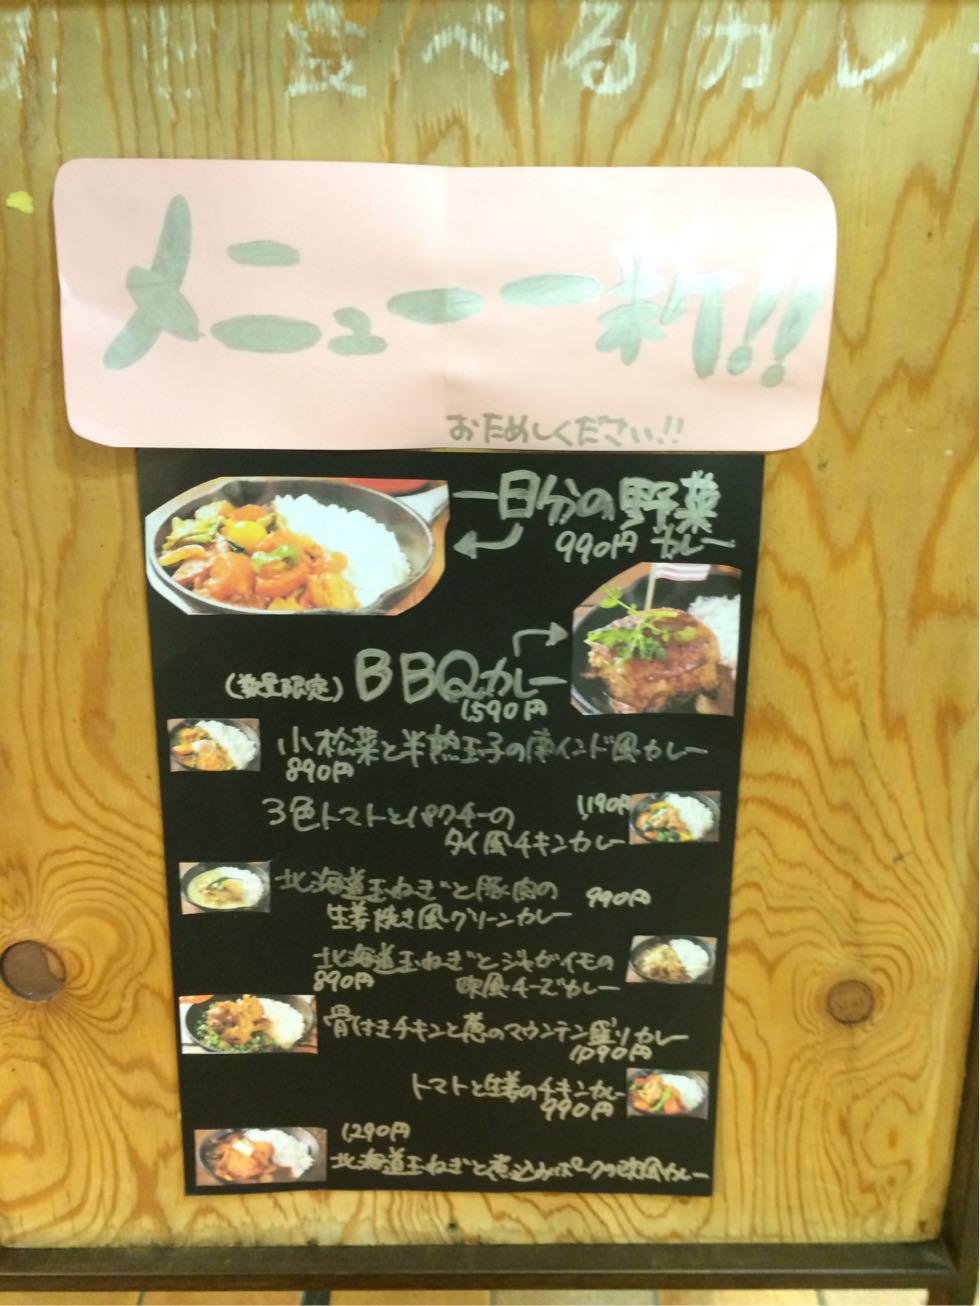 食べるカレ
メニュー一新!!
おためしください!!
一日分の野菜
990円 カレー
(数量限定) BBQカレー
1,590円
小松菜と半熟玉子の南インド風カレー
890円
3色トマトとパクチーの 1,190円
タイ風チキンカレー
北海道玉ねぎと豚肉の 990円
生姜焼き風グリーンカレー
北海道玉ねぎとジャガイモの
890円 欧風チーズカレー
骨付きチキンと葱のマウンテン盛りカレー
1,090円
トマトと生姜のチキンカレー
990円
1,290円
北海道玉ねぎと煮込みポークの欧風カレー